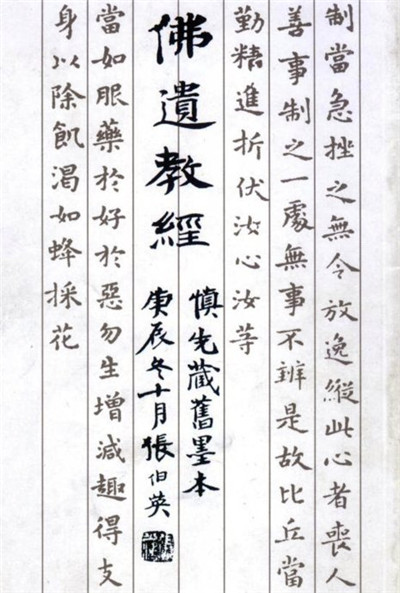 制當急挫之無令放逸縱此心者喪人
善事制之一處無事不辨是故比丘當
勤精進折伏汝心汝等
佛遺教經
慎先藏舊墨本
庚辰冬十月張伯英
當如眼藥於好於惡勿生增減趣得支
身以除飢渴如蜂採花